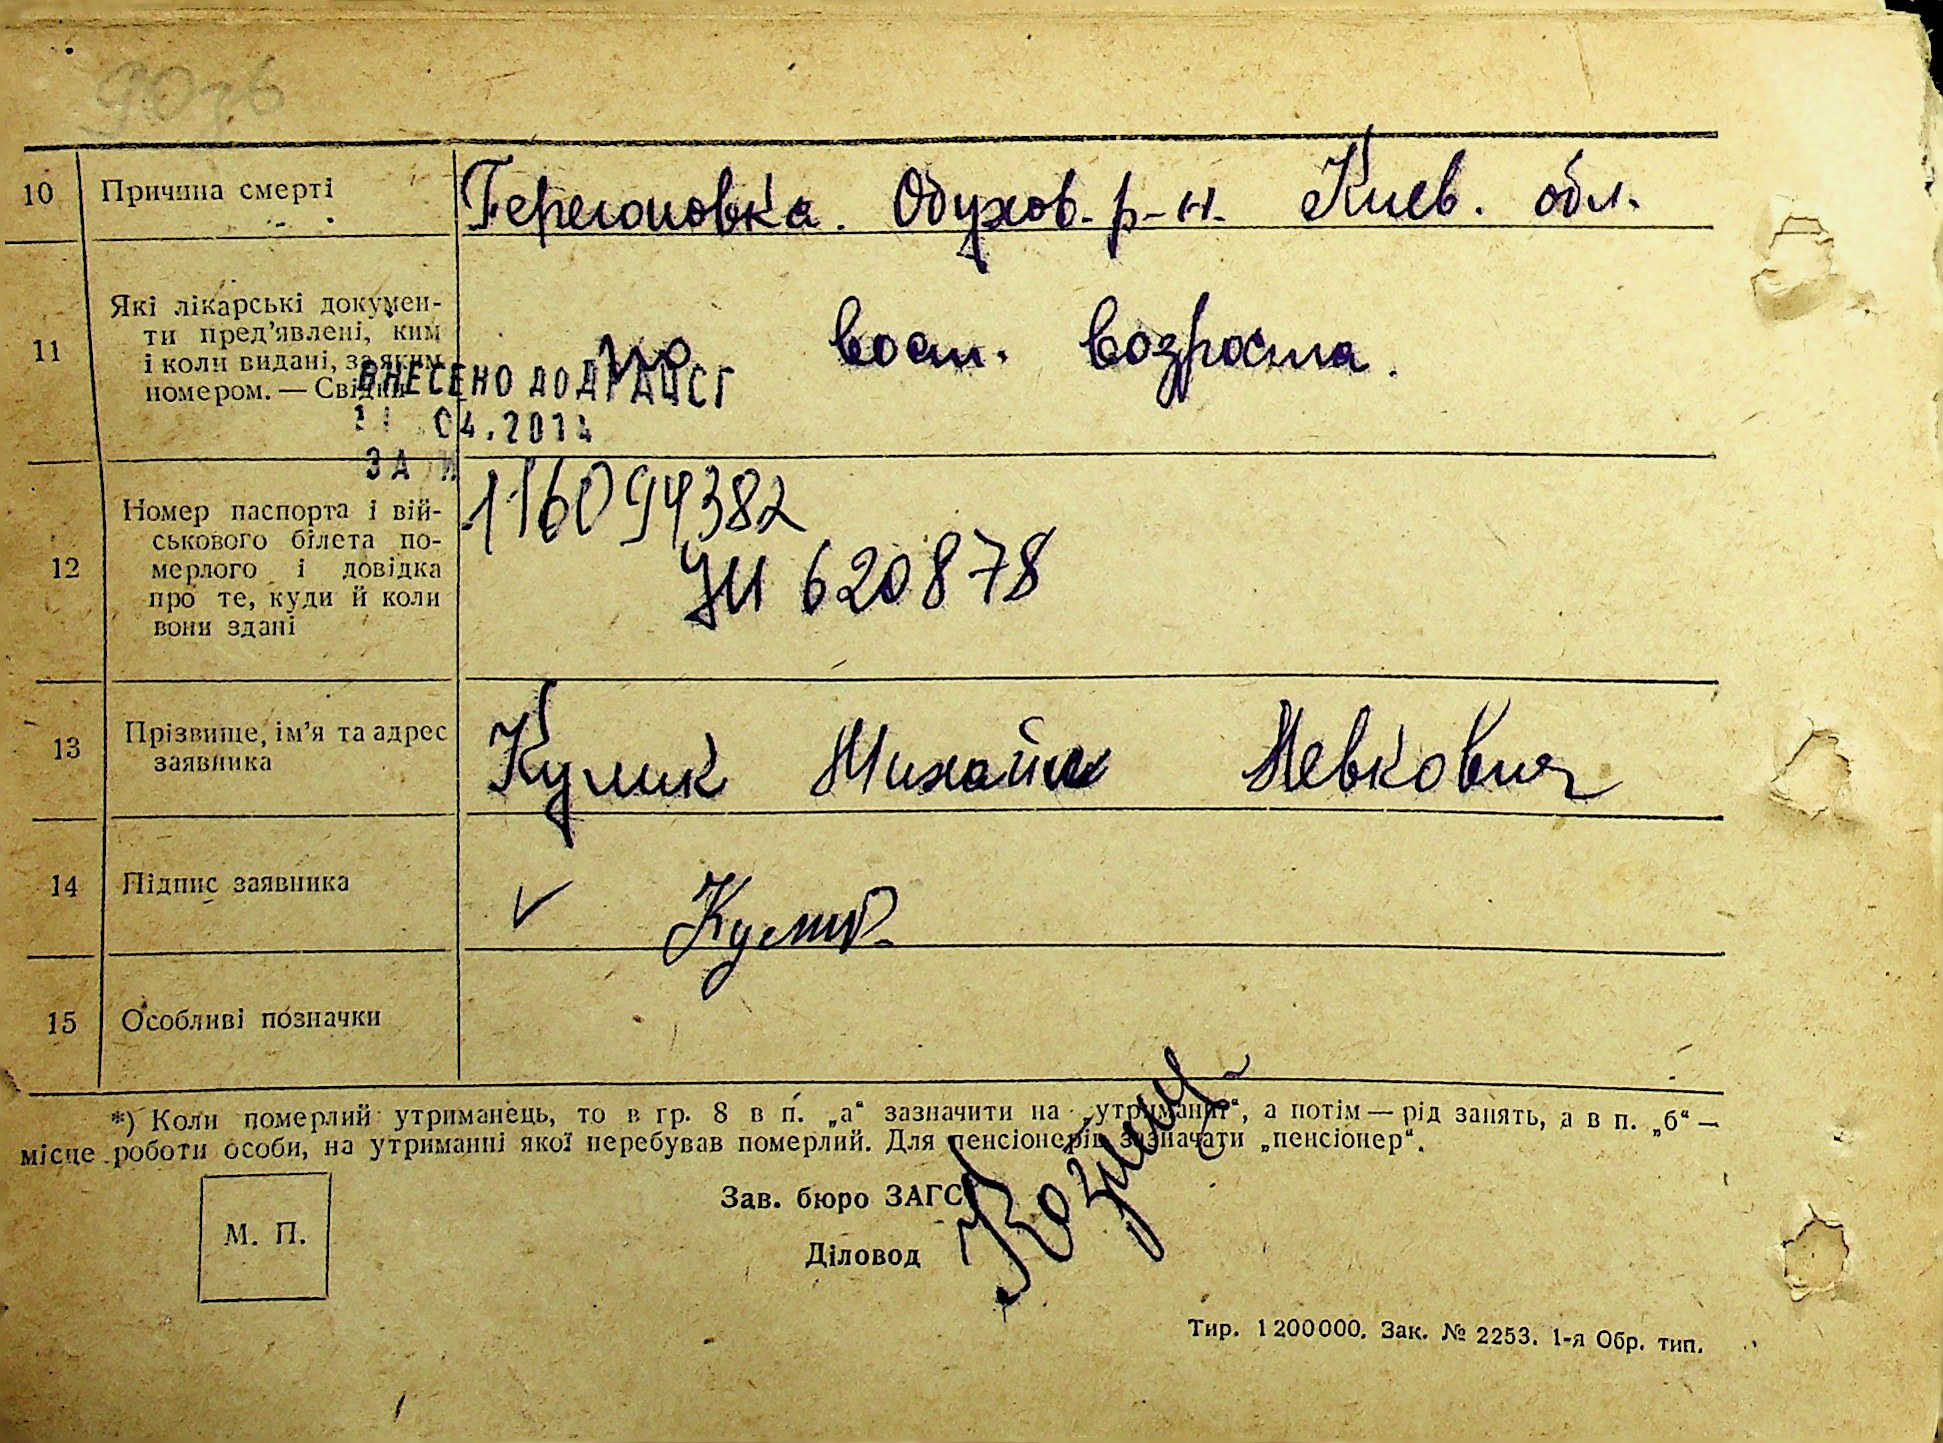 10 Причина смерті Гереголовка. Обухов. р-н. Киев. обл.
11 Які лікарські докумен-
ти пред'явлені, ким
і коли видані, за яким
номером. — Свідки
по вост. возраста.
ВНЕСЕНО ДО ДРАЦСГ
04.201
ЗА №
116094382
12 Номер паспорта і вій-
ськового білета по-
мерлого і довідка
про те, куди й коли
вони здані
620878
13 Прізвище, ім'я та адрес
заявника
Кулик Михайил Левкович
14 Підпис заявника
15 Особливі позначки
*) Коли померлий утриманець, то в гр. 8 в п. „а“ зазначити на „утриманні“, а потім — рід занять, а в п. „б“ —
місце роботи особи, на утриманні якої перебував померлий. Для пенсіонерів зазначати „пенсіонер“.
Зав. бюро ЗАГС
М. П.
Діловод
Тир. 1200000. Зак. № 2253. 1-я Обр. тип.